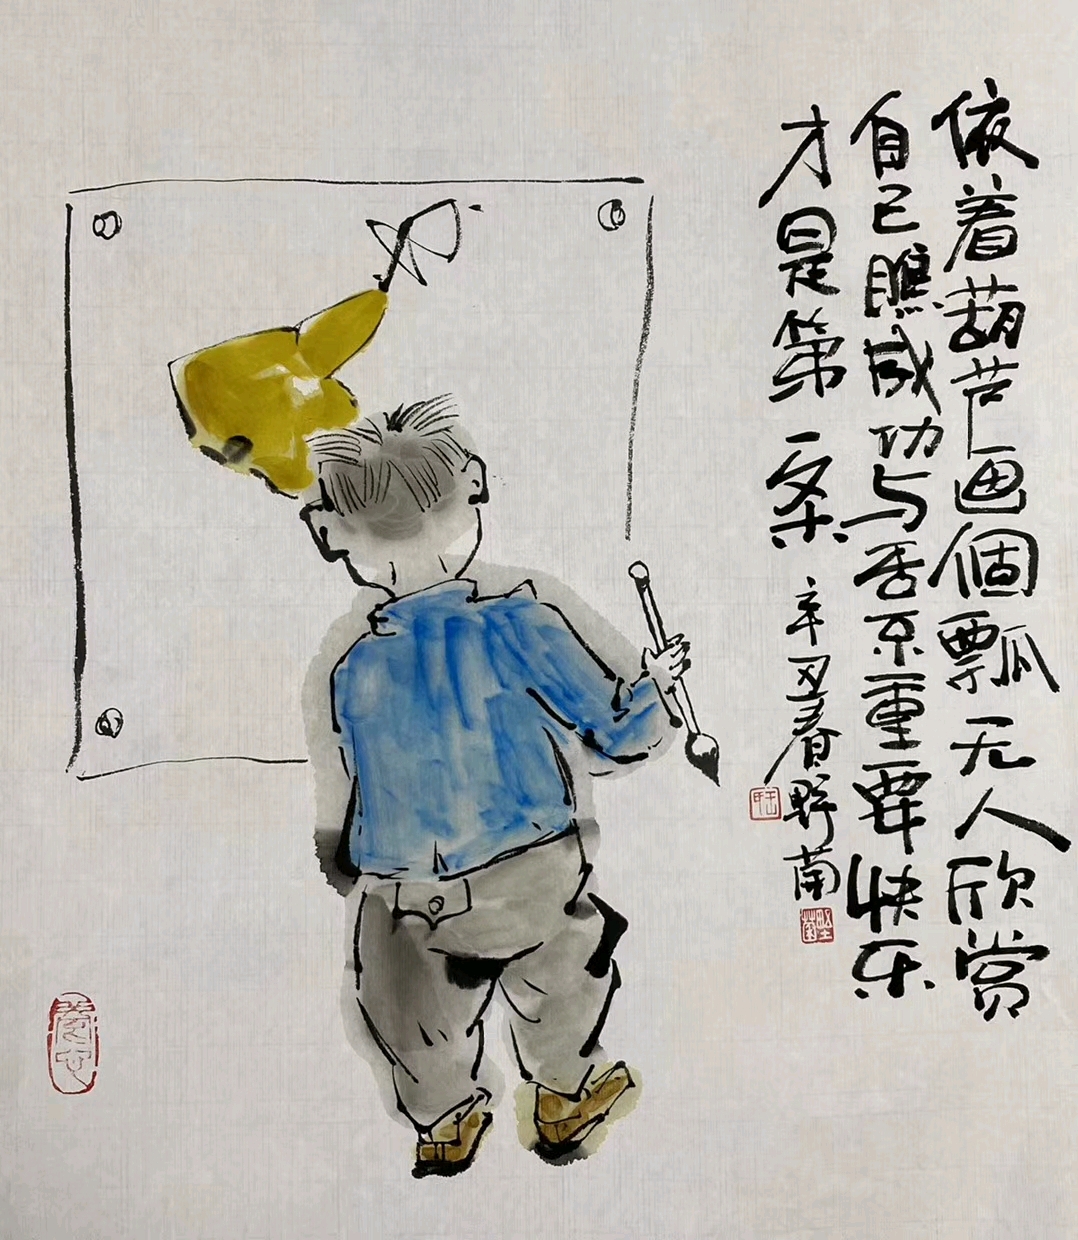 依着葫芦画個瓢无人欣赏
自己瞧成功与否不重要快乐
才是第一条 辛丑春野